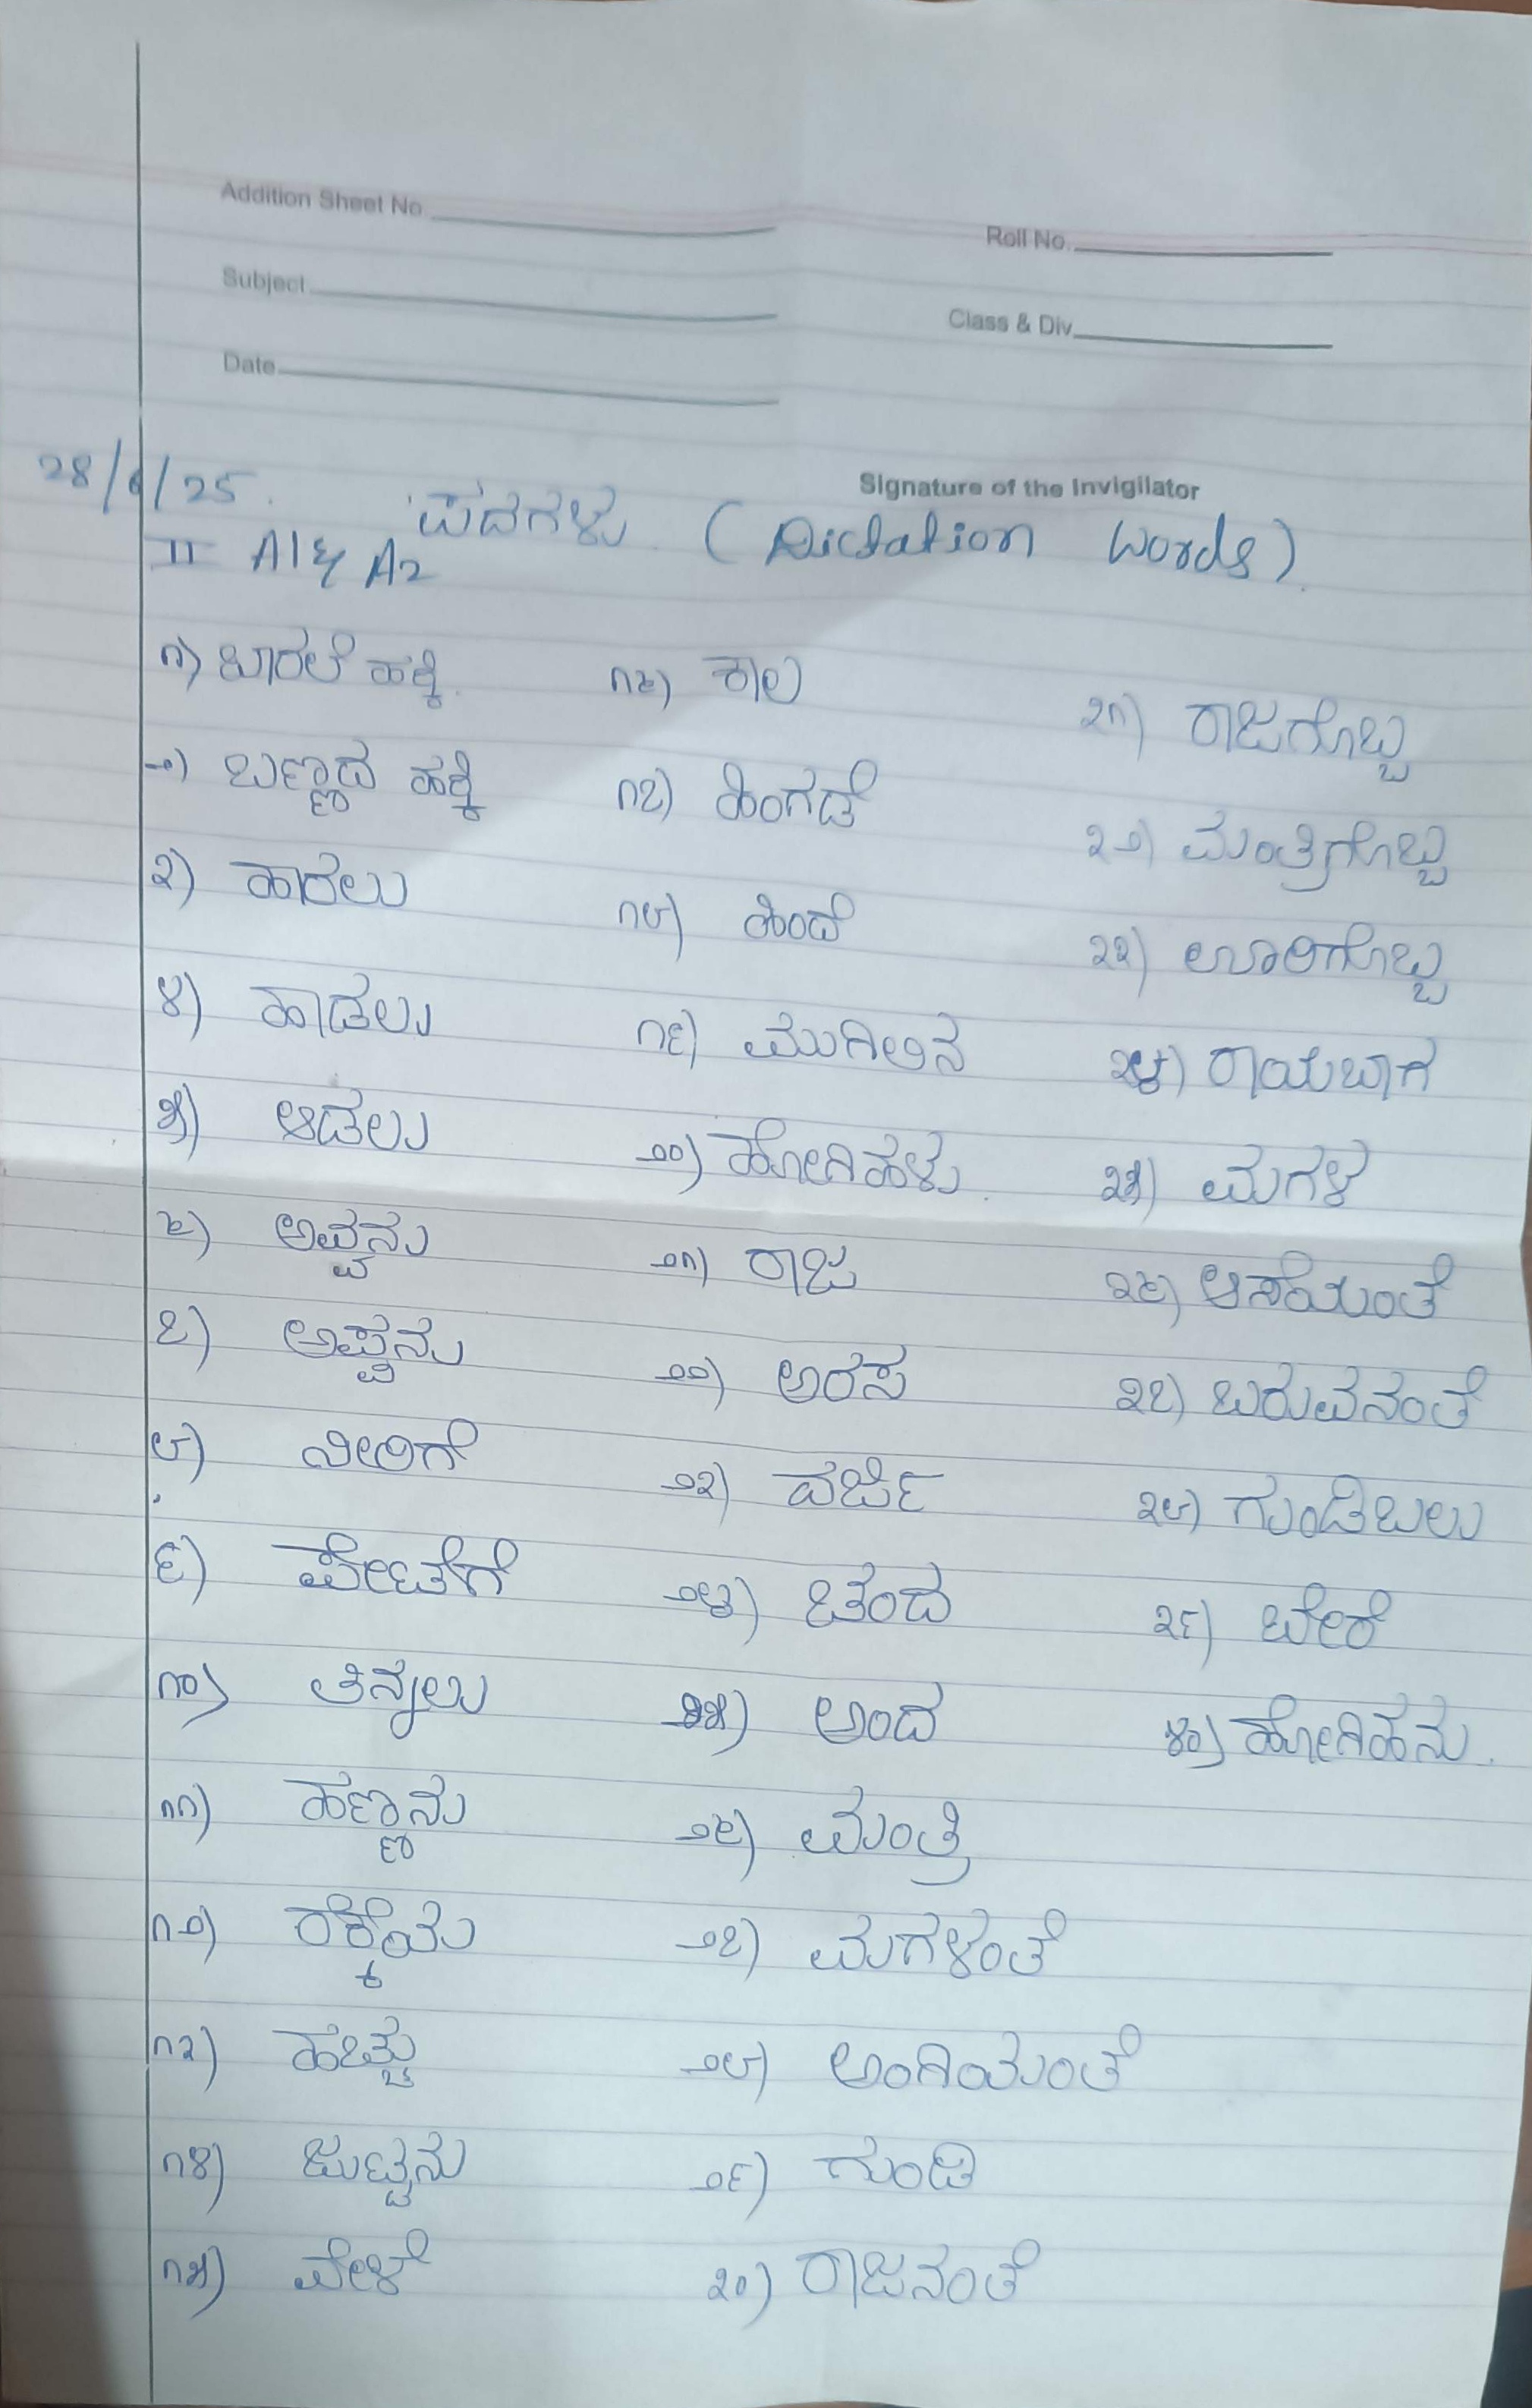 Addition Sheet No.
Roll No.
Subject
Class & Div.
Date
Signature of the Invigilator
28/6/25. ಪದಗಳು (Dictation Words).
II A1 & A2
೧) ಬಾರಲೆ ಹಕ್ಕಿ.
೨) ಬಣ್ಣದ ಹಕ್ಕಿ
೩) ಹಾರಲು
೪) ಹಾಡಲು
೫) ಆಡಲು
೬) ಅವ್ವನು
೭) ಅಪ್ಪನು
೮) ನೀರಿಗೆ
೯) ಪೇಟೆಗೆ
೧೦) ತಿನ್ನಲು
೧೧) ಹಣ್ಣನು
೧೨) ರೆಕ್ಕೆಯ
೧೩) ಹಚ್ಚು
೧೪) ಜುಟ್ಟನು
೧೫) ವೇಳೆ
೧೬) ಕಾಲ
೧೭) ಹಿಂಗಡೆ
೧೮) ಹಿಂದೆ
೧೯) ಮುಗಿಲಿನ
೨೦) ಹೋಗಿಹಳು.
೨೧) ರಾಜ
೨೨) ಅರಸ
೨೩) ವರ್ಜಿ
೨೪) ಚಂದ
೨೫) ಅಂದ
೨೬) ಮಂತ್ರಿ
೨೭) ಮಗಳಂತೆ
೨೮) ಅಂಗಿಯಂತೆ
೨೯) ಗುಂಡಿ
೩೦) ರಾಜನಂತೆ
೩೧) ರಾಜಗೊಬ್ಬ
೩೨) ಮಂತ್ರಿಗೊಬ್ಬ
೩೩) ಊರಿಗೊಬ್ಬ
೩೪) ರಾಯಬಾಗ
೩೫) ಮಗಳ
೩೬) ಆಸೆಯಂತೆ
೩೭) ಬರುವನಂತೆ
೩೮) ಗುಂಡಿಬಲು
೩೯) ಬೇರೆ
೪೦) ಹೋಗಿಹನು.